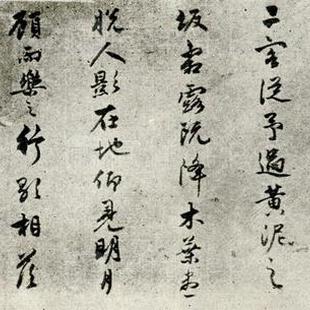 二客從予過黃泥之
坂霜露既降木葉盡
脫人影在地仰見明月
顧而樂之行歌相答